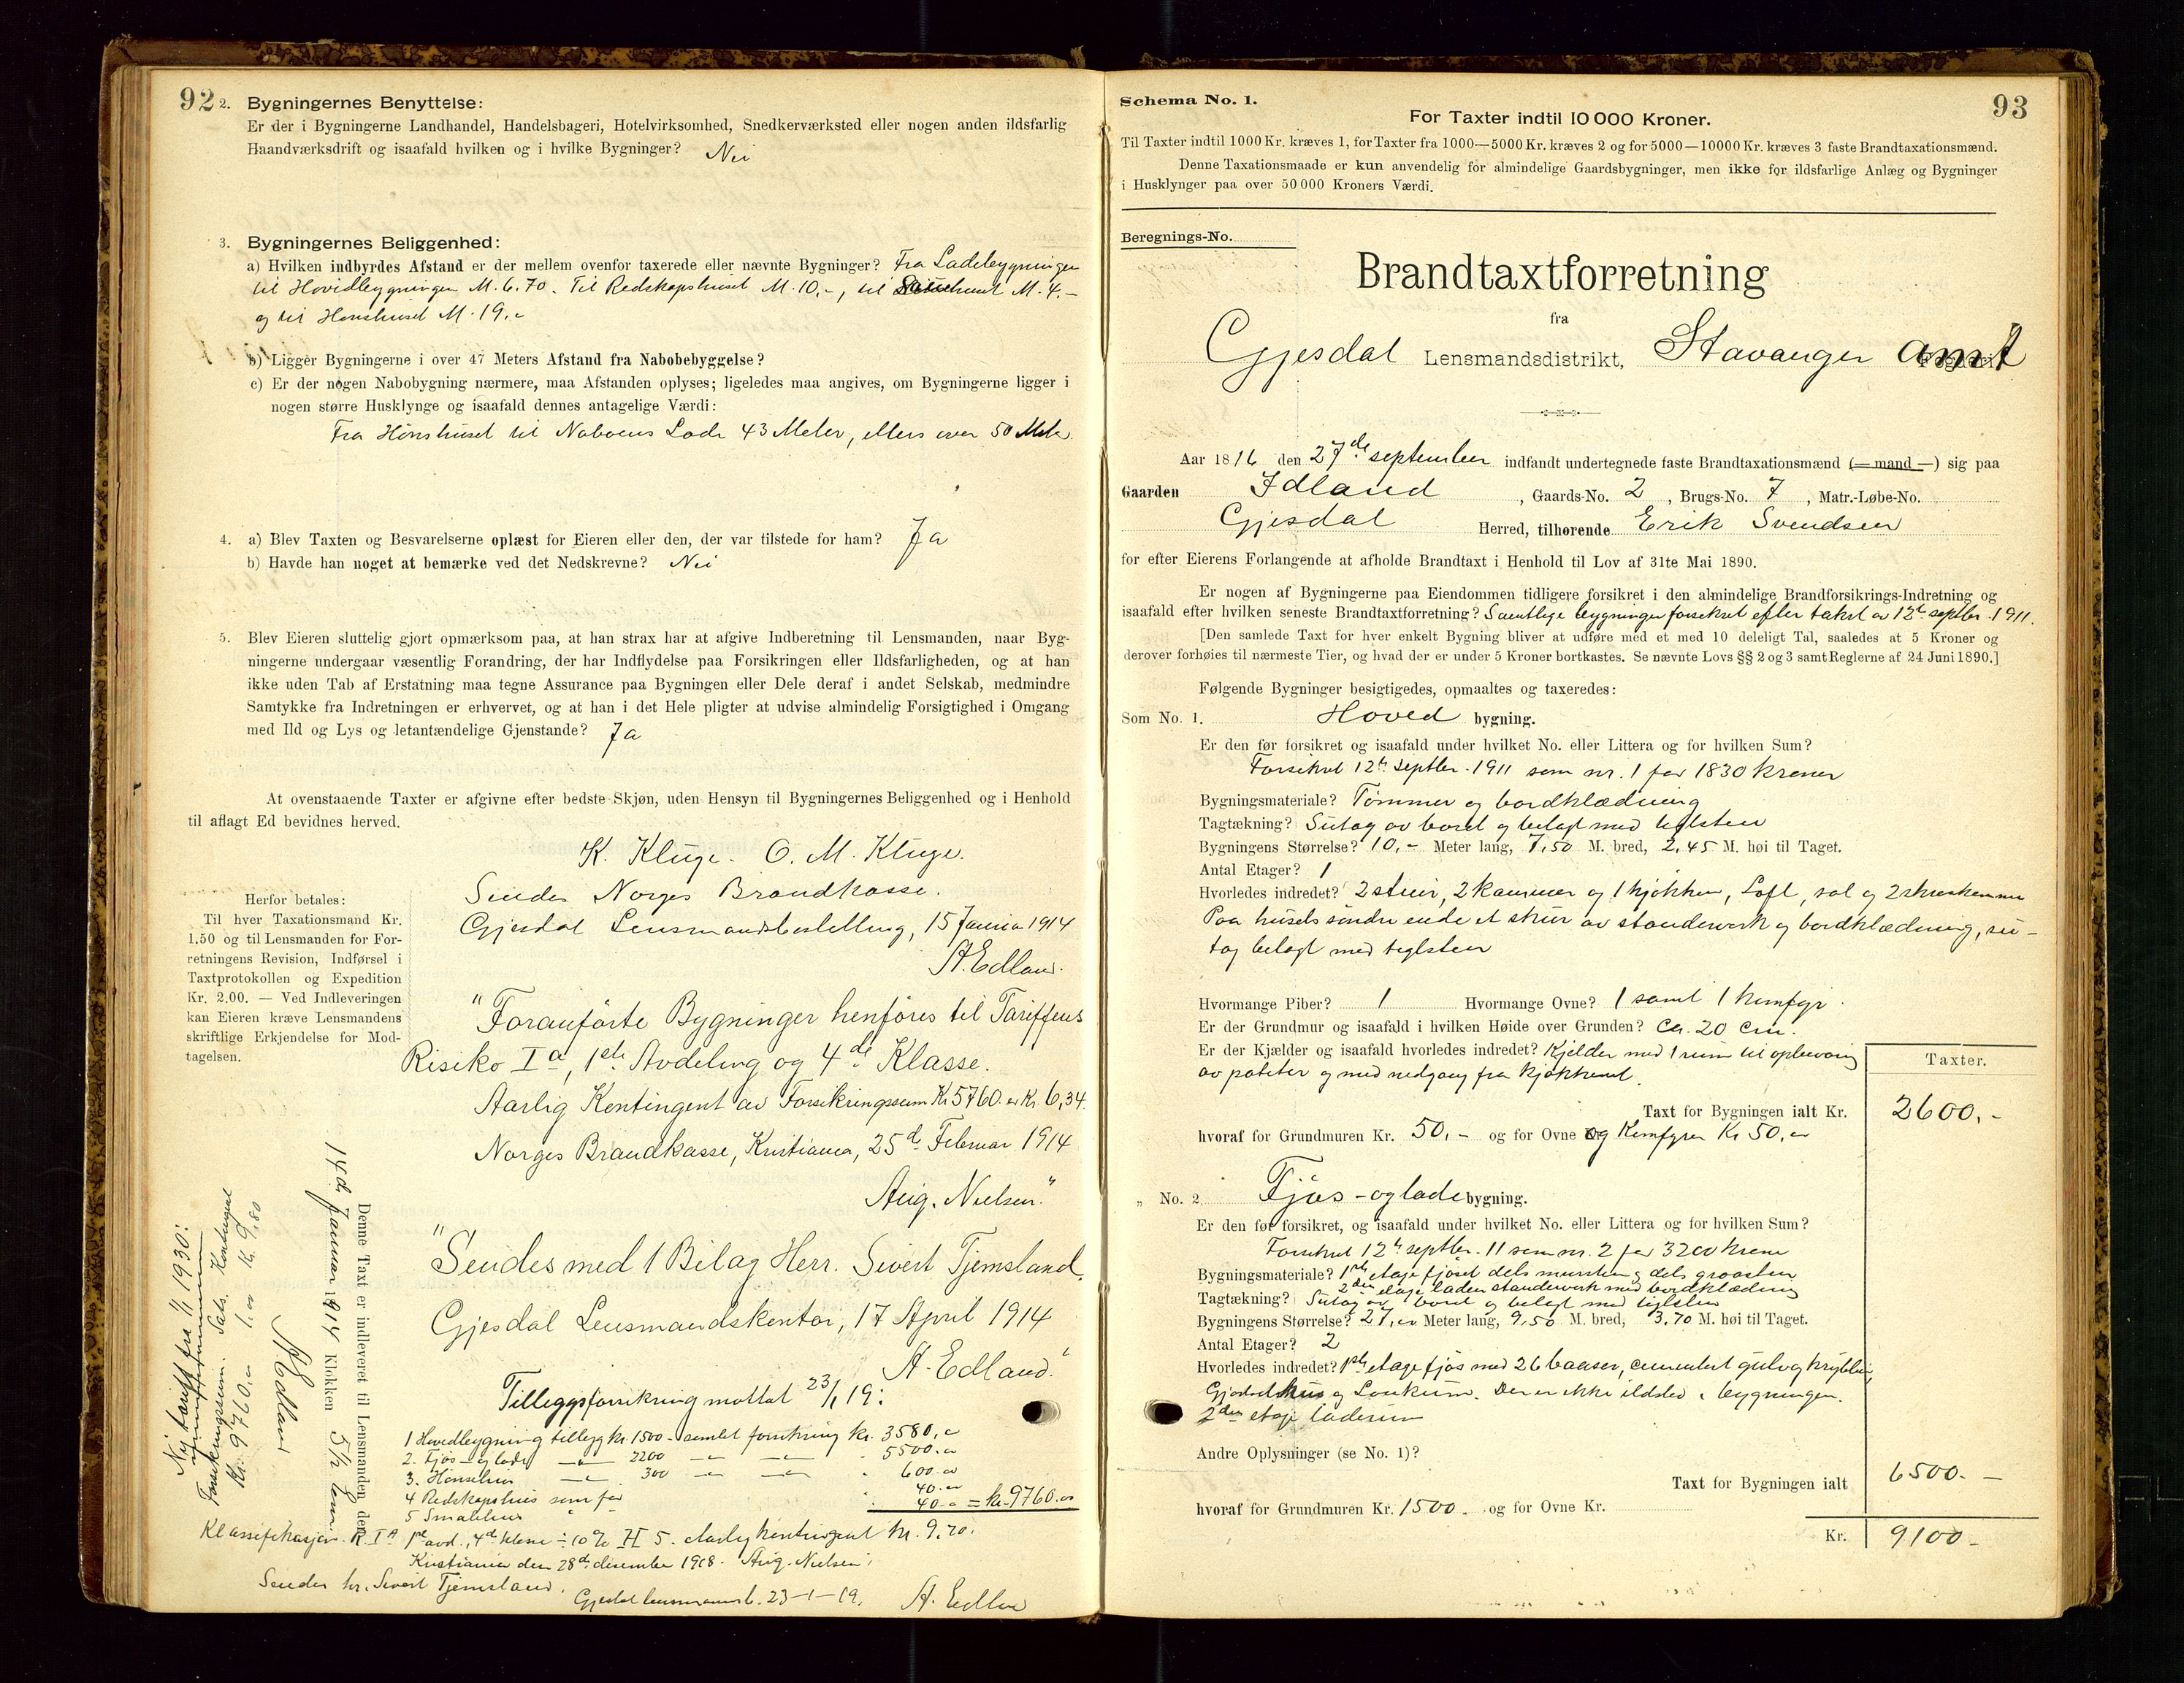 92
2. Bygningernes Benyttelse:
Er der i Bygningerne Landhandel, Handelsbageri, Hotelvirksomhed, Snedkerværksted eller nogen anden ildsfarlig
Haandværksdrift og isaafald hvilken og i hvilke Bygninger? Nei
3. Bygningernes Beliggenhed:
a) Hvilken indbyrdes Afstand er der mellem ovenfor taxerede eller nævnte Bygninger? Fra Ladebygningen
til Hovidbygningen M. 6,70. Til Redskapshuset M. 10,-, til M. 4,-
og til Hønshuset M. 19,-
b) Ligger Bygningerne i over 47 Meters Afstand fra Nabobebyggelse?
c) Er der nogen Nabobygning nærmere, maa Afstanden oplyses; ligeledes maa angives, om Bygningerne ligger i
nogen større Husklynge og isaafald dennes antagelige Værdi:
Fra Hønshuset til Naboens Lade 43 Meter, ellers over 50 Meter.
4. a) Blev Taxten og Besvarelserne oplæst for Eieren eller den, der var tilstede for ham? Ja
b) Havde han noget at bemærke ved det Nedskrevne? Nei
5. Blev Eieren sluttelig gjort opmærksom paa, at han strax har at afgive Indberetning til Lensmanden, naar Byg-
ningerne undergaar væsentlig Forandring, der har Indflydelse paa Forsikringen eller Ildsfarligheden, og at han
ikke uden Tab af Erstatning maa tegne Assurance paa Bygningen eller Dele deraf i andet Selskab, medmindre
Samtykke fra Indretningen er erhvervet, og at han i det Hele pligter at udvise almindelig Forsigtighed i Omgang
med Ild og Lys og letantændelige Gjenstande? Ja
At ovenstaaende Taxter er afgivne efter bedste Skjøn, uden Hensyn til Bygningernes Beliggenhed og i Henhold
til aflagt Ed bevidnes herved.
K. Kluge. O. M. Kluge.
Sendes Norges Brandkasse.
Gjesdal Lensmandsbestilling, 15 Januar 1914
A. Edland.
Herfor betales:
Til hver Taxationsmand Kr.
1.50 og til Lensmanden for For-
retningens Revision, Indførsel i
Taxtprotokollen og Expedition
Kr. 2.00. — Ved Indleveringen
kan Eieren kræve Lensmandens
skriftlige Erkjendelse for Mod-
tagelsen.
"Foranførte Bygninger henføres til Tariffens
Risiko Ia, 1ste Avdeling og 4de Klasse.
Aarlig Kontingent av Forsikringssum Kr. 5760.- er Kr. 6,34
Norges Brandkasse, Kristiania, 25de Februar 1914
Aug. Nielsen."
"Sendes med 1 Bilag Herr. Sivert Tjemsland.
Gjesdal Lensmandskontor, 17 April 1914
A. Edland."
Tillegsforsikring mottat 23/1 19:
1 Hovedbygning tillegg kr. 1500 - samlet forsikring kr. 3580,-
2. Fjøs- og lade 2200 5500.-
3. Hønsehus 300 600.-
4 Redskapshus som før 40.-
5 Smalehus 40.- = kr. 9760.-
Klassifikasjon. R. IA 1ste avd., 4de klasse ÷ 10% H 5. Aarlig kontingent kr. 9.70.
Kristiania den 28de desember 1918. Aug. Nielsen.
Sendes hr. Sivert Tjemsland.
Gjesdal lensmannsb. 23-1-19. A. Edland
Denne Taxt er indleveret til Lensmanden den
14de Januar 1914 Klokken 5½ Em.
A. Edland
Ny tariff fra 1/1 1930:
Forsikringssum. Sats. Kontingent
Kr. 9760.- 1.- Kr. 9,80
93
Schema No. 1.
For Taxter indtil 10 000 Kroner.
Til Taxter indtil 1000 Kr. kræves 1, for Taxter fra 1000—5000 Kr. kræves 2 og for 5000—10000 Kr. kræves 3 faste Brandtaxationsmænd.
Denne Taxationsmaade er kun anvendelig for almindelige Gaardsbygninger, men ikke for ildsfarlige Anlæg og Bygninger
i Husklynger paa over 50 000 Kroners Værdi.
Beregnings-No.
Brandtaxtforretning
fra
Gjesdal Lensmandsdistrikt, Stavanger amt
Aar 1816 den 27de september indfandt undertegnede faste Brandtaxationsmænd (— mand —) sig paa
Gaarden Idland, Gaards-No. 2, Brugs-No. 7, Matr.-Løbe-No.
Gjesdal Herred, tilhørende Erik Svendsen
for efter Eierens Forlangende at afholde Brandtaxt i Henhold til Lov af 31te Mai 1890.
Er nogen af Bygningerne paa Eiendommen tidligere forsikret i den almindelige Brandforsikrings-Indretning og
isaafald efter hvilken seneste Brandtaxtforretning? Samtlige bygninger forsikret efter takst av 12te septbr. 1911.
[Den samlede Taxt for hver enkelt Bygning bliver at udføre med et med 10 deleligt Tal, saaledes at 5 Kroner og
derover forhøies til nærmeste Tier, og hvad der er under 5 Kroner bortkastes. Se nævnte Lovs §§ 2 og 3 samt Reglerne af 24 Juni 1890.]
Følgende Bygninger besigtigedes, opmaaltes og taxeredes:
Som No. 1. Hoved bygning.
Er den før forsikret og isaafald under hvilket No. eller Littera og for hvilken Sum?
Forsikret 12te septbr. 1911 som nr. 1 for 1830 kroner
Bygningsmateriale? Tømmer og bordklædning
Tagtækning? Sutag av bord og belagt med teglsten
Bygningens Størrelse? 10,- Meter lang, 7,50 M. bred, 2,45 M. høi til Taget.
Antal Etager? 1
Hvorledes indredet? 2 stuer, 2 kammer og 1 kjøkken, Loft, sal og 2
Paa husets søndre ende et skur av standerverk og bordklædning, su-
tag belagt med teglsten
Hvormange Piber? 1 Hvormange Ovne? 1 samt 1 komfyr.
Er der Grundmur og isaafald i hvilken Høide over Grunden? ca. 20 cm.
Er der Kjælder og isaafald hvorledes indredet? Kjelder med 1 rum til opbevaring
av poteter og med nedgang fra kjøkkenet.
Taxter.
Taxt for Bygningen ialt Kr. 2600,-
hvoraf for Grundmuren Kr. 50,- og for Ovne og Komfyren Kr 50,-
„ No. 2. Fjøs- og lade bygning.
Er den før forsikret, og isaafald under hvilket No. eller Littera og for hvilken Sum?
Forsikret 12te septbr. 11 som nr. 2 for 3200 krone
Bygningsmateriale? 1ste etage fjøset dels mursten og dels graasten
2den etage laden standerverk med bordklædning
Tagtækning? Sutag av bord og belagt med teglsten
Bygningens Størrelse? 27,- Meter lang, 9,50 M. bred, 3,70 M. høi til Taget.
Antal Etager? 2
Hvorledes indredet? 1ste etage fjøs med 26 baaser, cementert gulv og krybber,
Gjødselhus og Lonkum. Der er ikke ildsted i bygningen.
2den etage laderum
Andre Oplysninger (se No. 1)?
Taxt for Bygningen ialt 6500.-
hvoraf for Grundmuren Kr. 1500. og for Ovne Kr.
Kr. 9100-